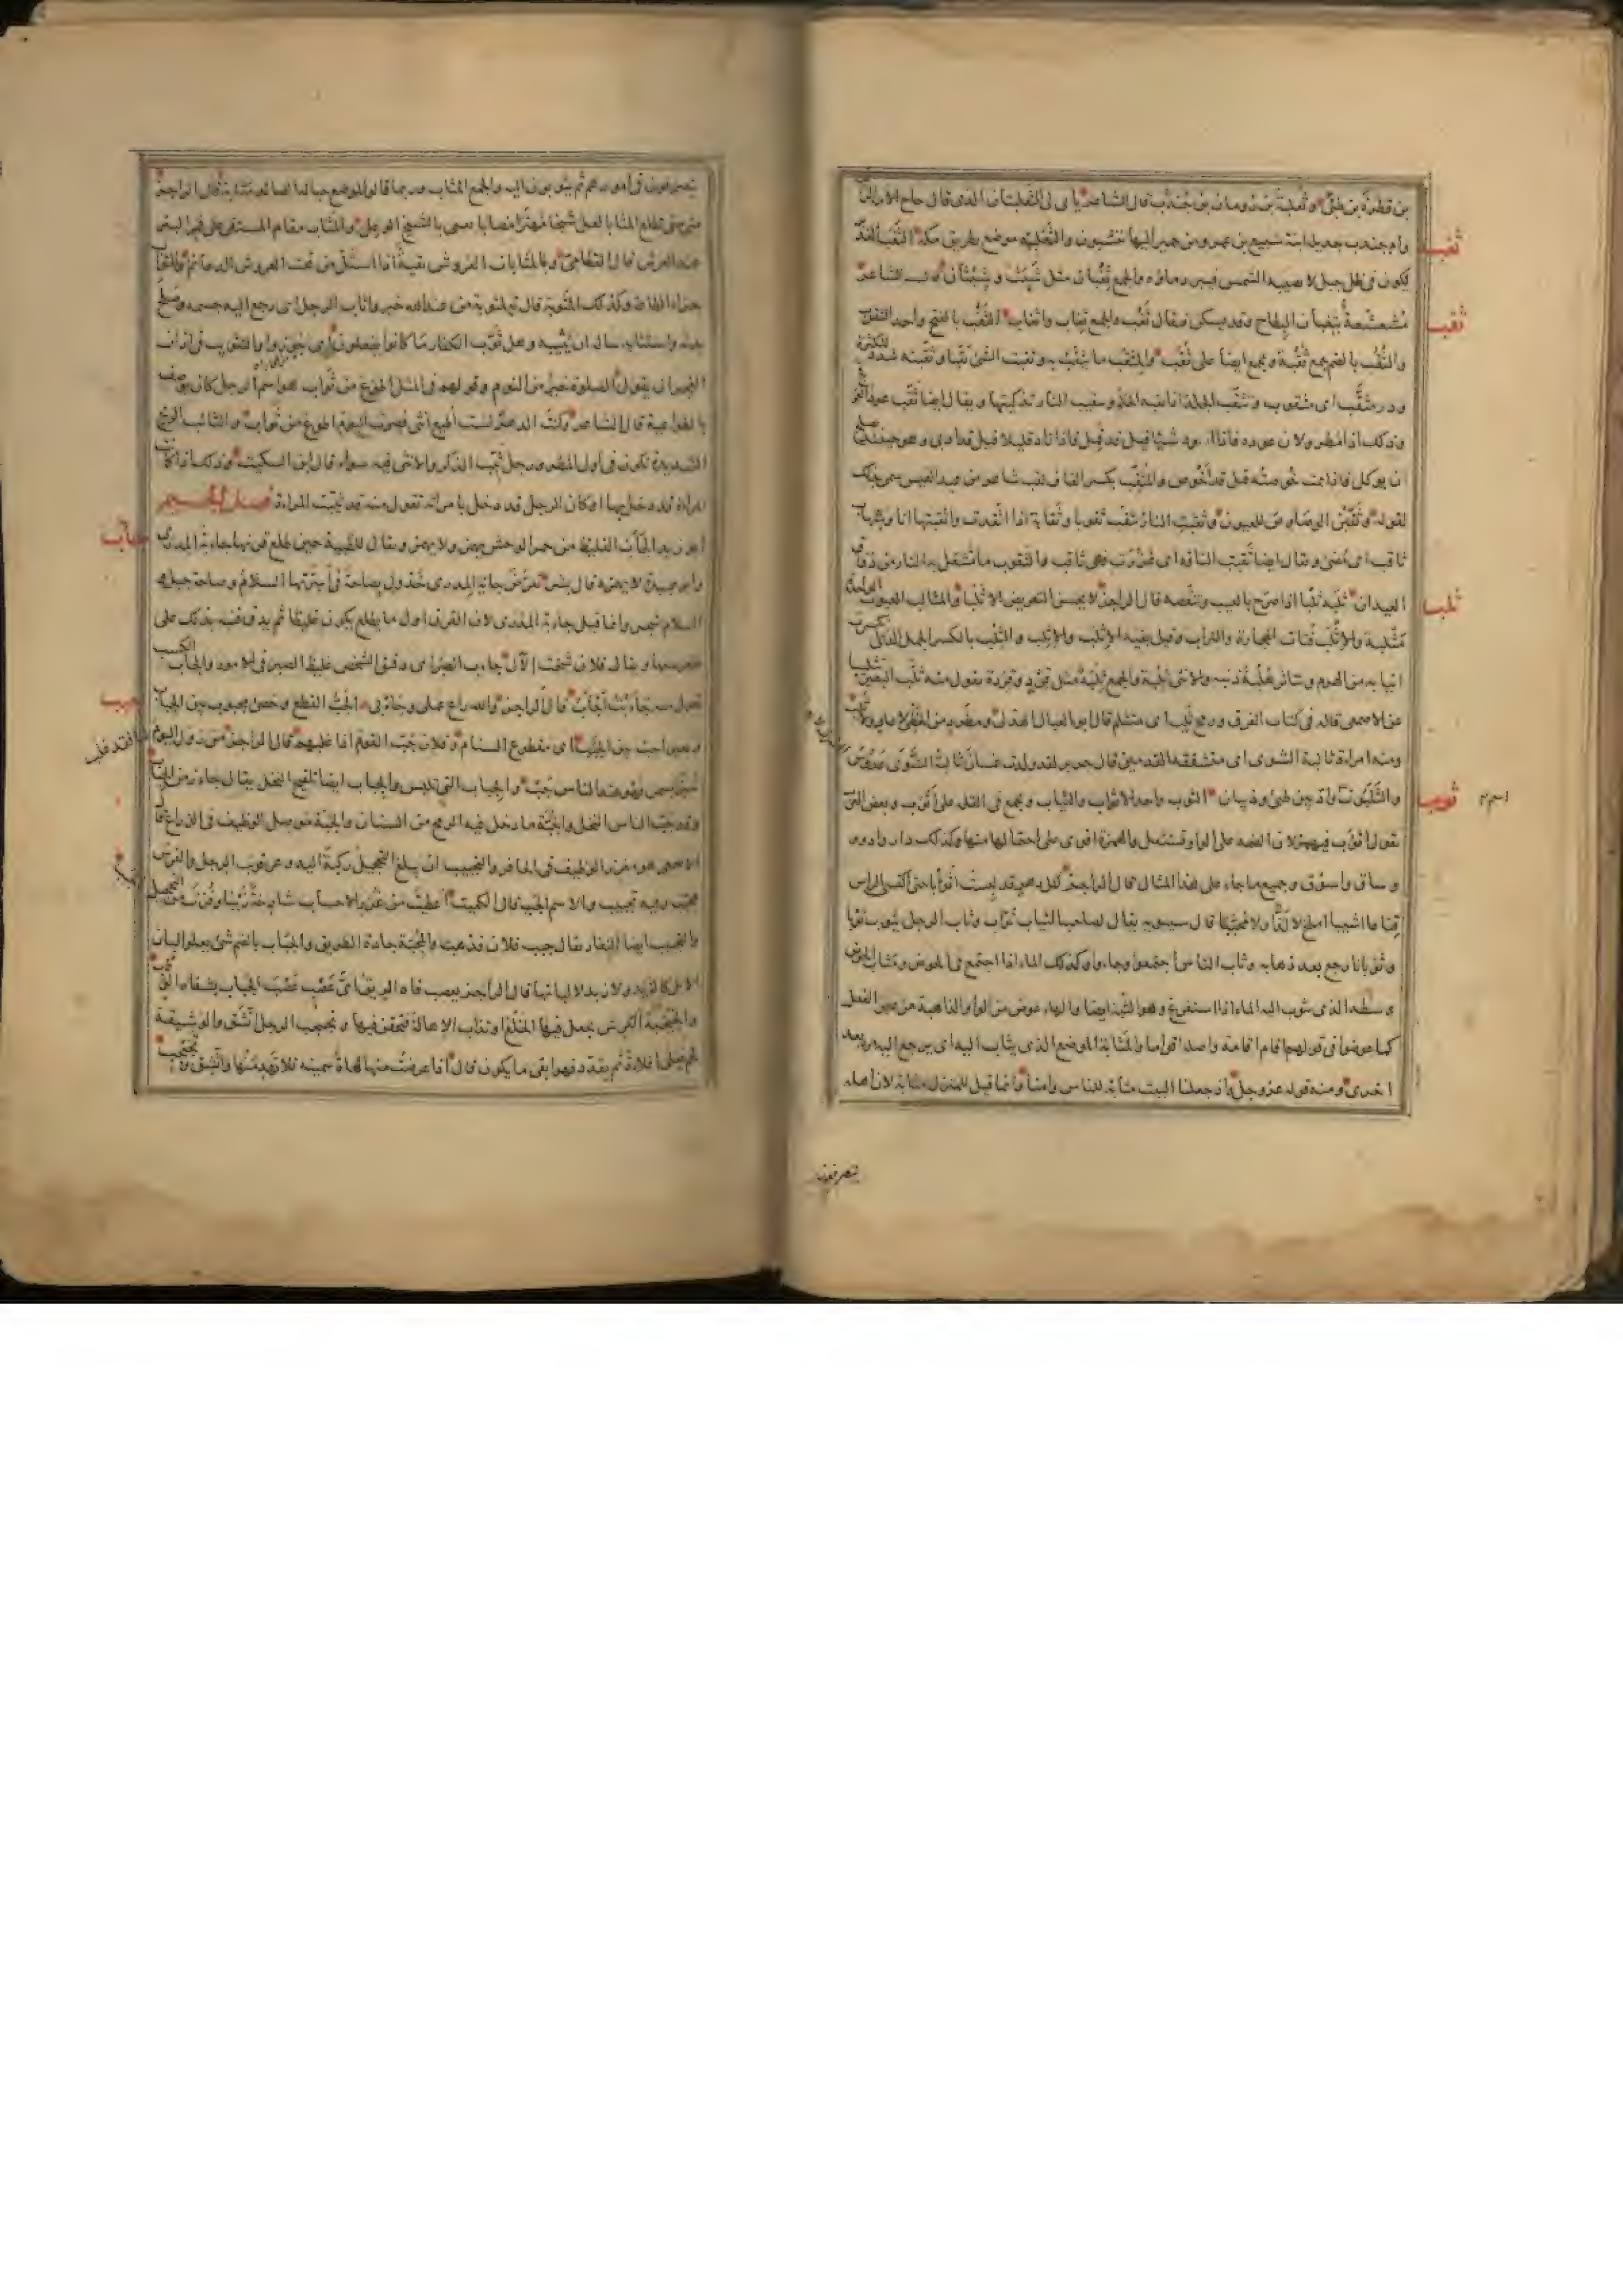 بن قطرة بن طيّ وثعلبة بن رومان بن جندب قال الشاعر يأبى لي الثعلبتان الذي قال
وأم جندب جديلة ابنة سبيع بن عمرو من حمير إليها ينسبون والثعلبية موضع بطريق مكة
ثعب
يكون في ظل جبل لا تصيبه الشمس فيبرد ماؤه والجمع ثغبان مثل شبث وشبثان قال الشاعر
مشعشعة بثغبان البطاح وقد يسكن فيقال ثغب والجمع ثغاب واثغاب الثقب بالفتح واحد الثقوب
ثقب
والثقب بالضم جمع ثقبة ويجمع ايضا على ثقب والمثقب ما يثقب به وثقبت الشئ ثقبا وثقبته شدد للكثرة
ودر مثقب اى مثقوب وتثقب الجلد اذا ثقبه الحلم وتثقيب النار تذكيتها ويقال ايضا ثقب عود العرفج
وذلك اذا مطر ولان عوده فاذا اسود شيئا قيل قد قمل فاذا زاد قليلا قيل قد ادبى وهو حينئذ يصلح
ان يوكل فاذا تمت خوصته قيل قد اخوص والمثقب بكسر القاف لقب شاعر من عبد القيس سمى بذلك
لقوله وثقبن الوصاوص للعيون وثقبت النار تثقب ثقوبا وثقابة اذا اتقدت واثقبتها انا وشهاب
ثاقب اى مضئ ويقال ايضا ثقبت الناقة اى غزرت فهى ثاقب والثقوب ما تشعل به النار من دقاق
العيدان ثلبه ثلبا اذا صرح بالعيب وتنقصه قال الراجز لا يحسن التعريض الا ثلبا والمثالب العيوب الواحدة
ثلب
مثلبة والاثلب فتات الحجارة والتراب والثلب بالكسر الجمل الذى
انيابه من الهرم وتناثر هلب ذنبه والانثى ثلبة والجمع ثلبة مثل قرد وقردة تقول منه ثلب البعير تثليبا
عن الاصمعى قاله فى كتاب الفرق ورمح ثلب اى متثلم قال ابو العيال الهذلى ومطرد من الخطى لا عار ولا ثلب
ومنه امراة ثالبة الشوى اى متشققة القدمين قال جرير لقد ولدت غسان ثالبة الشوى
ثوب
والثوب واحد الاثواب والثياب ويجمع فى القلة على اثوب وبعض العرب
يقول اثؤب فيهمز لان الضمة على الواو تستثقل والهمزة اقوى على احتمالها منها وكذلك دار وادور
وساق واسؤق وجميع ما جاء على هذا المثال قال الراجز لكل دهر قد لبست اثوبا حتى اكتسى الراس
قناعا اشيبا املح لا لذا ولا محببا قال سيبويه يقال لصاحب الثياب ثواب وثاب الرجل يثوب ثوبا
وثوبانا رجع بعد ذهابه وثاب الناس اجتمعوا وجاءوا وكذلك الماء اذا اجتمع فى الحوض ومثاب الحوض
وسطه الذى يثوب اليه الماء اذا استفرغ وهو الثبة ايضا والهاء عوض من الواو الذاهبة من عين الفعل
كما عوضوا فى قولهم اقام اقامة واصله اقواما والمثابة الموضع الذى يثاب اليه اى يرجع اليه مرة بعد
اخرى ومنه قوله عز وجل واذ جعلنا البيت مثابة للناس وامنا وانما قيل للمنزل مثابة لان اهله
يتصرفون
يتصرفون فى امورهم ثم يثوبون اليه والجمع المثاب وربما قالوا لموضع حبالة الصائد مثابة قال الراجز
متى متى تطلع المثابا لعل شيخا مهترا مصابا يعنى بالشيخ الوعل والمثاب مقام المستقى على فم البئر
عند العرش قال القطامى وما لمثابات العروش بقية اذا استل من تحت العروش الدعائم والثواب
جزاء الطاعة وكذلك المثوبة قال الله لمثوبة من عند الله خير واثاب الرجل اى رجع اليه جسمه وصلح
بدنه واستثابه ساله ان يثيبه وهل ثوب الكفار ما كانوا يفعلون اى جوزوا والتثويب فى اذان
الفجر ان يقول الصلوة خير من النوم وقولهم فى المثل اطوع من ثواب هو اسم رجل كان يوصف
بالطواعية قال الشاعر وكنت الدهر لست اطيع انثى فصرت اليوم اطوع من ثواب والثائب الريح
الشديدة تكون فى اول المطر ورجل ثيب الذكر والانثى فيه سواء قال ابن السكيت وذلك اذا كانت
المراة قد دخل بها او كان الرجل قد دخل بامراته تقول منه قد ثيبت المراة فصل الجيم
جأب
ابو زيد الجأب الغليظ من حمر الوحش يهمز ولا يهمز ويقال للظبية حين طلع قرنها جابة المدرى
وابو عبيدة لا يهمزه قال بشر تعرض جابة المدرى خذول بصاحة فى اسرتها السلام وصاحة جبل
السلام شجر وانما قيل جابة المدرى لان القرن اول ما يطلع يكون غليظا ثم يدق فنبه بذلك على
صغر سنها ويقال فلان شخت الآل جأب الصبر اى دقيق الشخص غليظ الصبر فى الامور والجأب الكسب
جبب
تقول منه جأبت اجأب قال الراجز والله راع عملى وجأبى الجب القطع وخصى مجبوب بين الجباب
وبعير اجب بين الجبب اى مقطوع السنام وفلان جب القوم اذا غلبهم قال الراجز من رول اليوم لنا فقد غلب
خبزا بسمن فهو عند الناس جب والجباب التى تلبس والجباب ايضا تلقيح النخل يقال جاء زمن الجباب
وقد جب الناس النخل والجبة ما دخل فيه الرمح من السنان والجبة موصل الوظيف فى الذراع قال
الاصمعى هو مغرز الوظيف فى الحافر والتجبيب ان يبلغ التحجيل ركبة اليد وعرقوب الرجل والفرس
مجبب وفيه تجبيب والاسم الجبب قال الكميت اعطيت من غرر الاحساب شادخة زينا وفزت من التحجيل
والتجبيب ايضا النفار يقال جبب فلان فذهب والجبة جادة الطريق والجباب بالضم شئ يعلو البان
الابل كالزبد ولا زبد لالبانها قال الراجز يعصب فاه الريق اى عصب عصب الجباب بشفاه الوطب
والجبجبة الكرش يجعل فيها الخلع او تذاب الاهالة فتحقن فيها وتجبجب الرجل اتشق والوشيقة
لحم يغلى اغلاءة ثم يقدد فهو ابقى ما يكون قال اذا عرضت منها كهاة سمينة فلا تهد منها واتشق وتجبجب